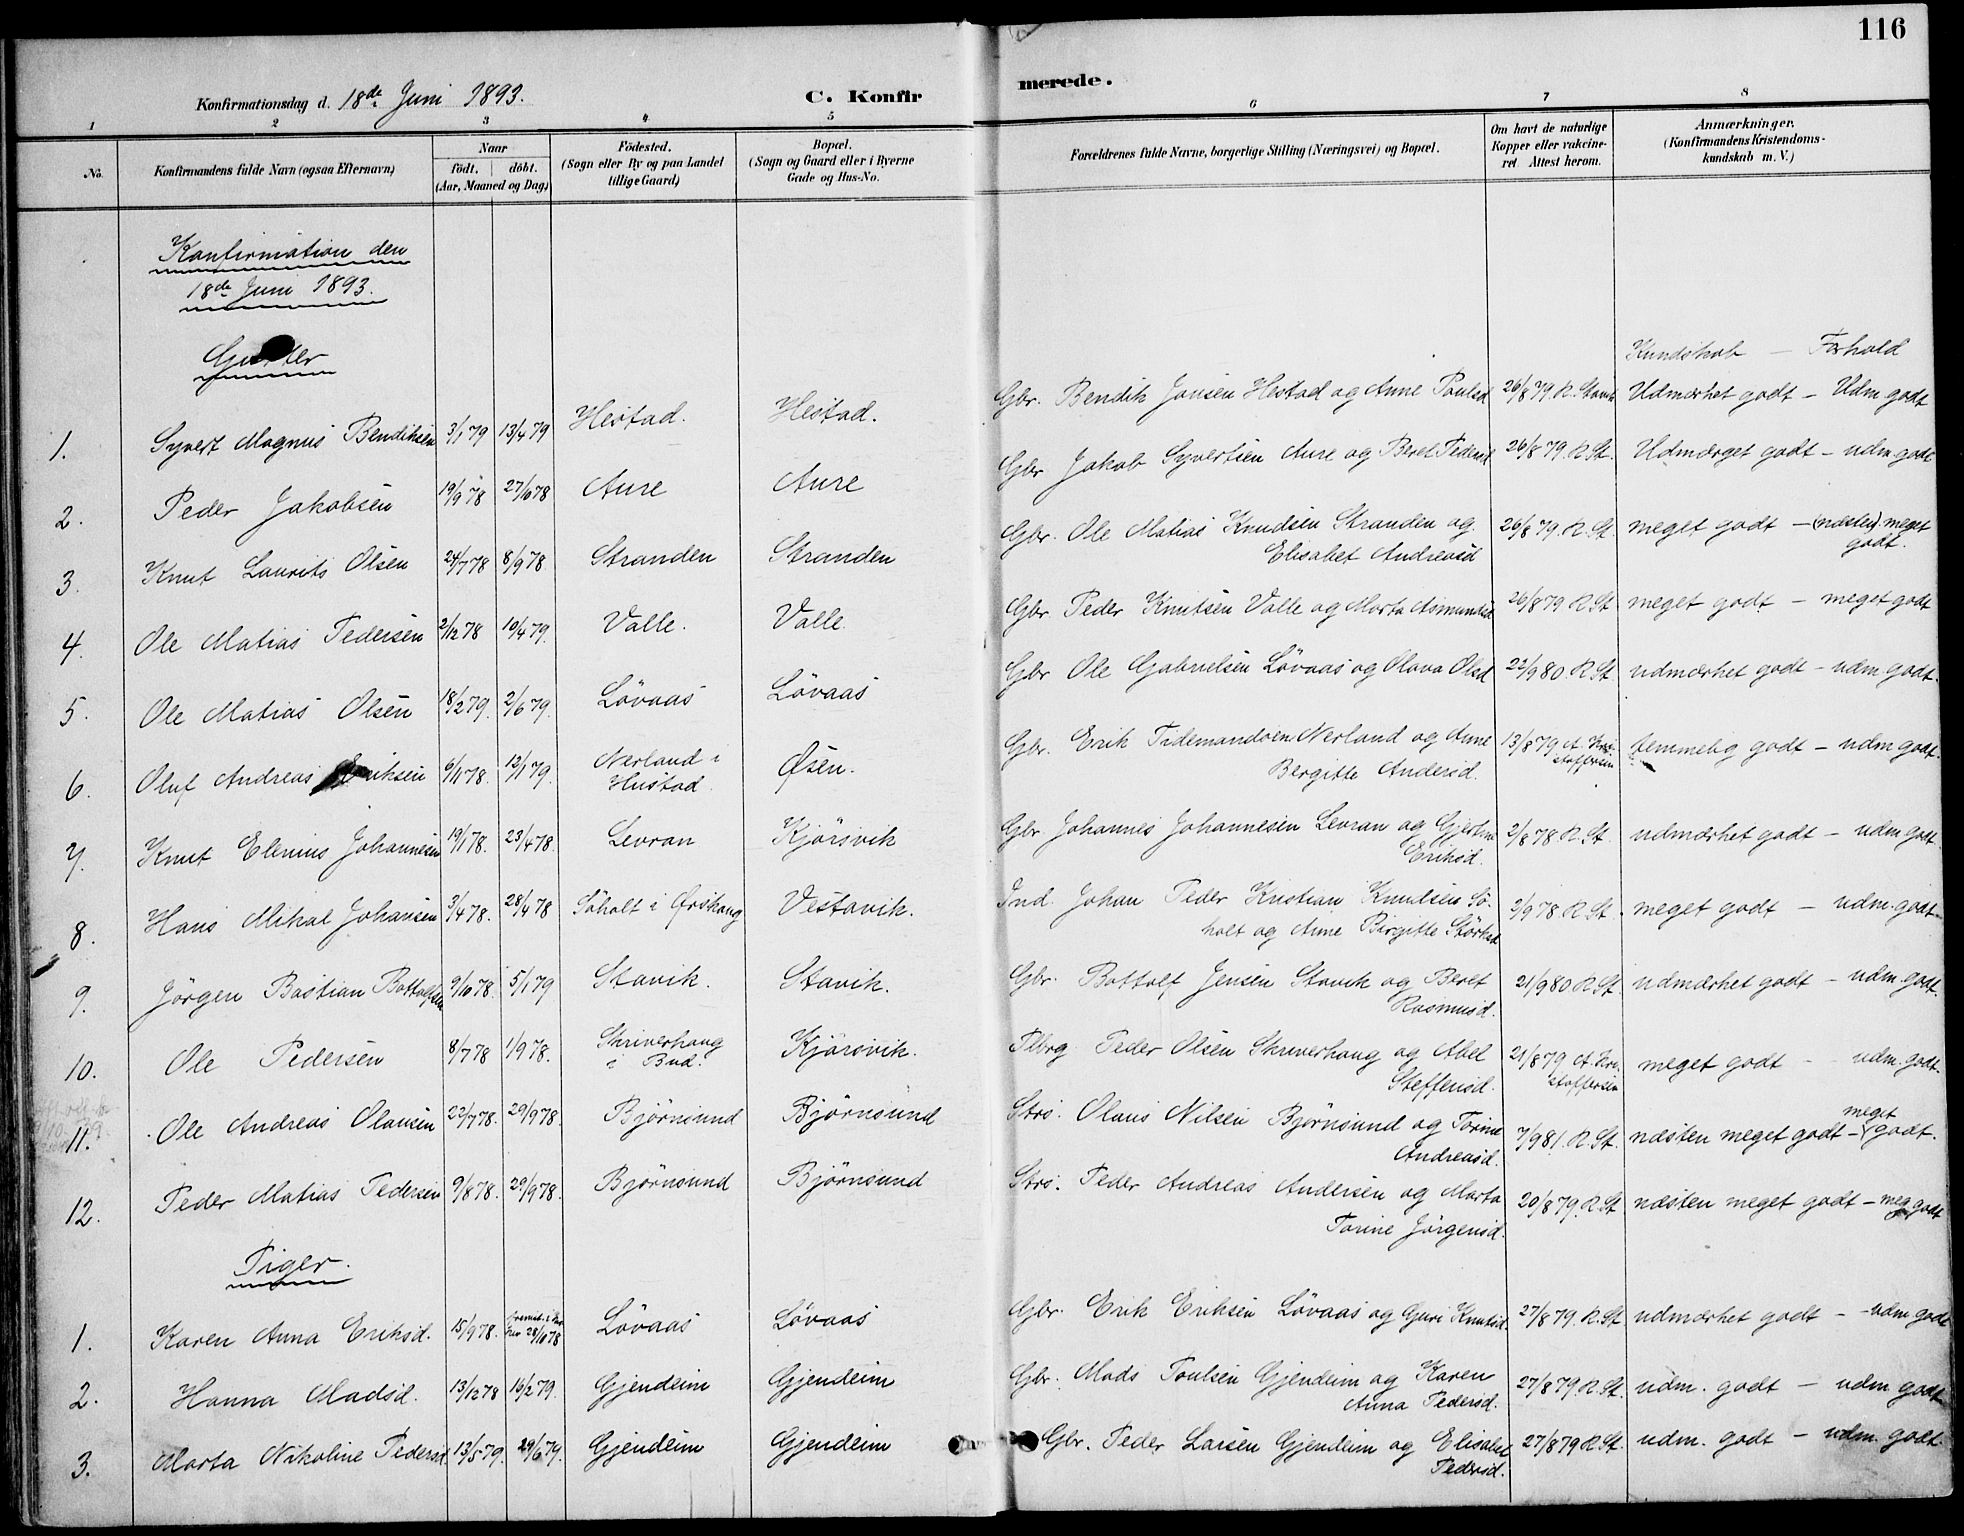 116
Konfirmationsdag d. 18de Juni 1893. C. Konfirmerede.
1 2 3 4 5 6 7 8
No. Konfirmandens fulde Navn (ogsaa Efternavn) Naar født. døbt. (Aar, Maaned og Dag) Fødested. (Sogn eller By og paa Landet tillige Gaard) Bopæl. (Sogn og Gaard eller i Byerne Gade og Hus-No. Forældrenes fulde Navne, borgerlige Stilling (Næringsvei) og Bopæl. Om havt de naturlige Kopper eller vakcineret. Attest herom. Anmærkninger. (Konfirmandens Kristendomskundskab m. V.)
Konfirmation den
18de Juni 1893.
Gutter
Kundskab – Forhold
1. Syvert Magnus Bendiksen 3/1 79 13/4 79 Hestad. Hestad. Gbr. Bendik Jonsen Hestad og Anne Poulsd 26/8 79. R. Stavik Udmærket godt – Udm. godt
2. Peder Jakobsen 19/9 78 27/10 78 Aure Aure Gbr. Jakob Syvertsen Aure og Beret Pedersd 26/8 79. R. St. Udmærget godt – udm. godt
3. Knut Laurits Olsen 24/7 78 8/9 78 Stranden Stranden Gbr. Ole Matias Knudsen Stranden og Elisabet Andreasd 26/8 79. R. St. meget godt – (næsten) meget godt.
4. Ole Matias Pedersen 2/12 78 10/4 79. Valle. Valle Gbr. Peder Knutsen Valle og Marta Asmundsd 26/8 79 R. St. meget godt – meget godt
5. Ole Matias Olsen 18/2 79. 2/6 79. Lövaas Lövaas Gbr Ole Gabrielsen Lövaas og Olava Olsd 22/9 80 R. St. udmærket godt – udm. godt.
6. Oluf Andreas Eriksen 6/11 78. 12/1 79. Nerland i Hustad Øsen. Gbr. Erik Tidemandsen Nerland og Anne Bergitte Andersd. 13/8 79 A. Kristoffersen temmelig godt – udm godt.
7. Knut Elenius Johannesen 19/1 78. 23/4 78. Levran Kjörsvik Gbr Johannes Johannesen Levran og Gjertine Eriksd. 2/8 78 R. St. udmærket godt – udm. godt.
8. Hans Mikal Johansen 3/4 78. 28/4 78 Söholt i Ørskoug Vestavik. Ind. Johan Peder Kristian Knudsen Söholt og Anne Birgitte Störksd 2/9 78 R. St. meget godt – udm. godt.
9. Jörgen Bastian Bottolfsen 9/10 78. 5/1 79 Stavik. Stavik. Gbr. Bottolf Jensen Stavik og Beret Rasmusd. 21/9 80 R. St. udmærket godt – udm. godt.
10. Ole Pedersen 8/7 78 1/9 78. Skriverhoug i Bud. Kjörsvik. Peder Olsen Skriverhoug og Abel Steffensd. 21/8 79 A. Kristoffersen meget godt – udm. godt.
11. Ole Andreas Olausen 22/7 78. 29/9 78. Björnsund Björnsund Strs. Olaus Nilsen Björnsund og Torine Andreasd. 7/9 81. R. St. næsten meget godt – meget godt.
12. Peder Matias Pedersen 9/8 78. 29/9 78. Björnsund Björnsund Strs. Peder Andreas Andersen og Marta Torine Jörgensd. 20/8 79. R. St. næsten meget godt – meg. godt
Piger.
1. Karen Anna Eriksd. 15/9 78. 28/10 78 Lövaas Lövaas Gbr. Erik Eriksen Lövaas og Guri Knutsd. 27/8 79. R. St. udmærket godt – udm. godt
2. Hanna Madsd. 13/12 78 16/2 79. Gjendeim Gjendeim Gbr. Mads Poulsen Gjendeim og Karen Anna Pedersd. 27/8 79 R. St. udm. godt – udm. godt
3. Marta Nikoline Pedersd 13/5 79. 29/6 79. Gjendeim Gjendeim Gbr. Peder Larsen Gjendeim og Elisabet Pedersd. 27/8 79 R. St. udm. godt – udm. godt.